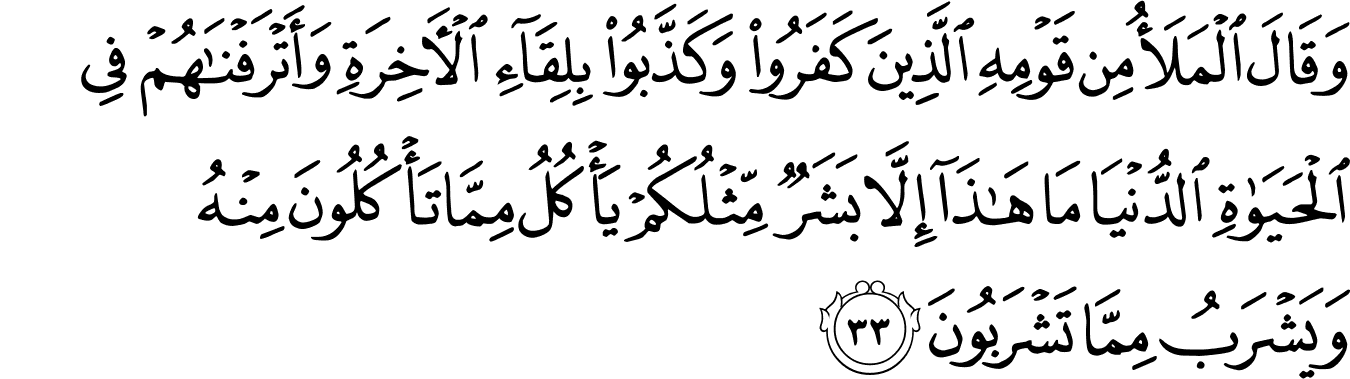 وَقَالَ ٱلْمَلَأُ مِن قَوْمِهِ ٱلَّذِينَ كَفَرُوا۟ وَكَذَّبُوا۟ بِلِقَآءِ ٱلْـَٔاخِرَةِ وَأَتْرَفْنَـٰهُمْ فِى
ٱلْحَيَوٰةِ ٱلدُّنْيَا مَا هَـٰذَآ إِلَّا بَشَرٌ مِّثْلُكُمْ يَأْكُلُ مِمَّا تَأْكُلُونَ مِنْهُ
وَيَشْرَبُ مِمَّا تَشْرَبُونَ ٣٣